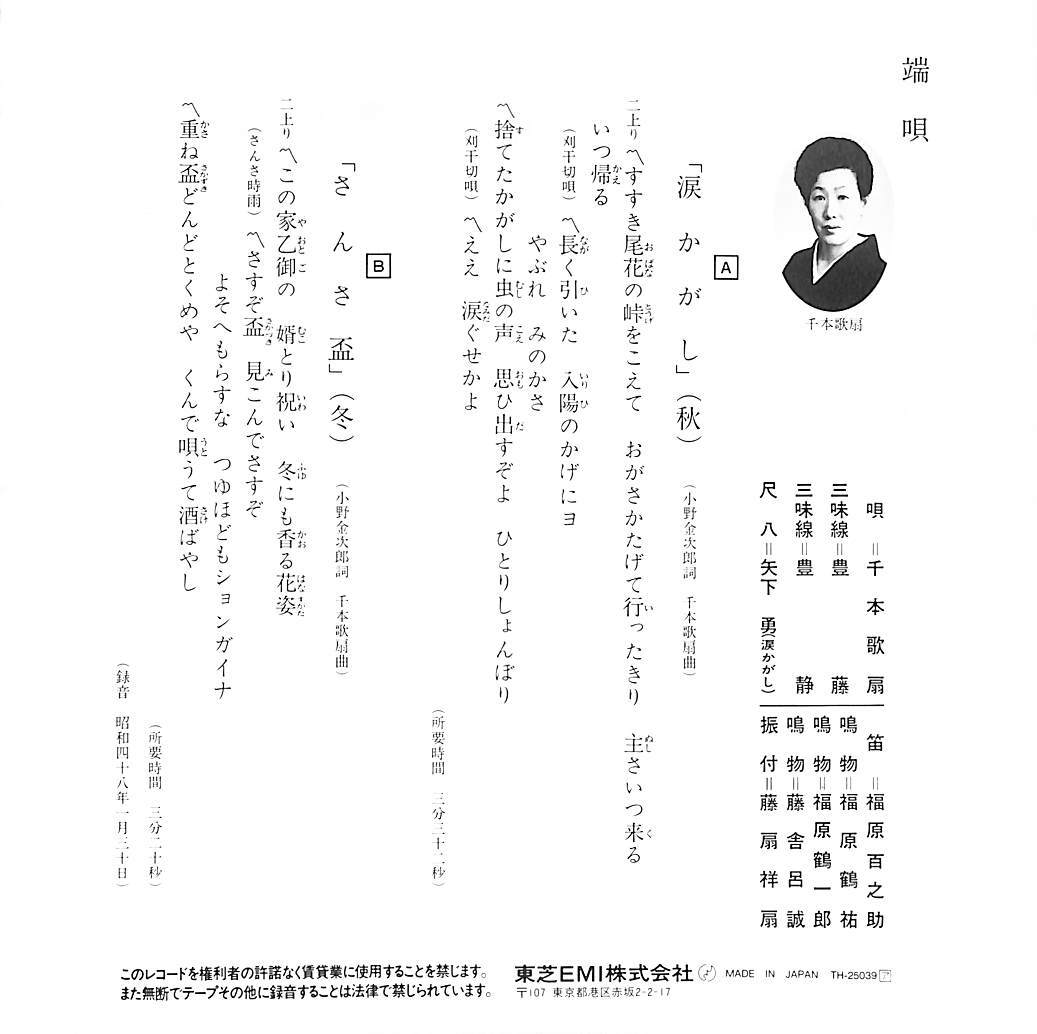 端唄
千本歌扇
唄＝千本歌扇
三味線＝豊藤
三味線＝豊静
尺八＝矢下勇(涙かがし)
笛＝福原百之助
鳴物＝福原鶴祐
鳴物＝福原鶴一郎
鳴物＝藤舎呂誠
振付＝藤扇祥扇
A
「涙かがし」(秋)
(小野金次郎詞 千本歌扇曲)
二上り〽すすき尾花の峠をこえて おがさかたげて行ったきり 主さいつ来る
いつ帰る
(刈干切唄)〽長く引いた 入陽のかげにヨ
やぶれ みのかさ
〽捨てたかがしに虫の声 思ひ出すぞよ ひとりしょんぼり
(刈干切唄)〽ええ 涙ぐせかよ
(所要時間 三分三十二秒)
B
「さんさ盃」(冬)
(小野金次郎詞 千本歌扇曲)
二上り〽この家乙御の 婿とり祝い 冬にも香る花姿
(さんさ時雨)〽さすぞ盃 見こんでさすぞ
よそへもらすな つゆほどもションガイナ
〽重ね盃どんどとくめや くんで唄うて酒ばやし
(所要時間 三分二十秒)
(録音 昭和四十八年一月三十日)
このレコードを権利者の許諾なく賃貸業に使用することを禁じます。
また無断でテープその他に録音することは法律で禁じられています。
東芝EMI株式会社 MADE IN JAPAN TH-25039 ア
〒107 東京都港区赤坂2-2-17